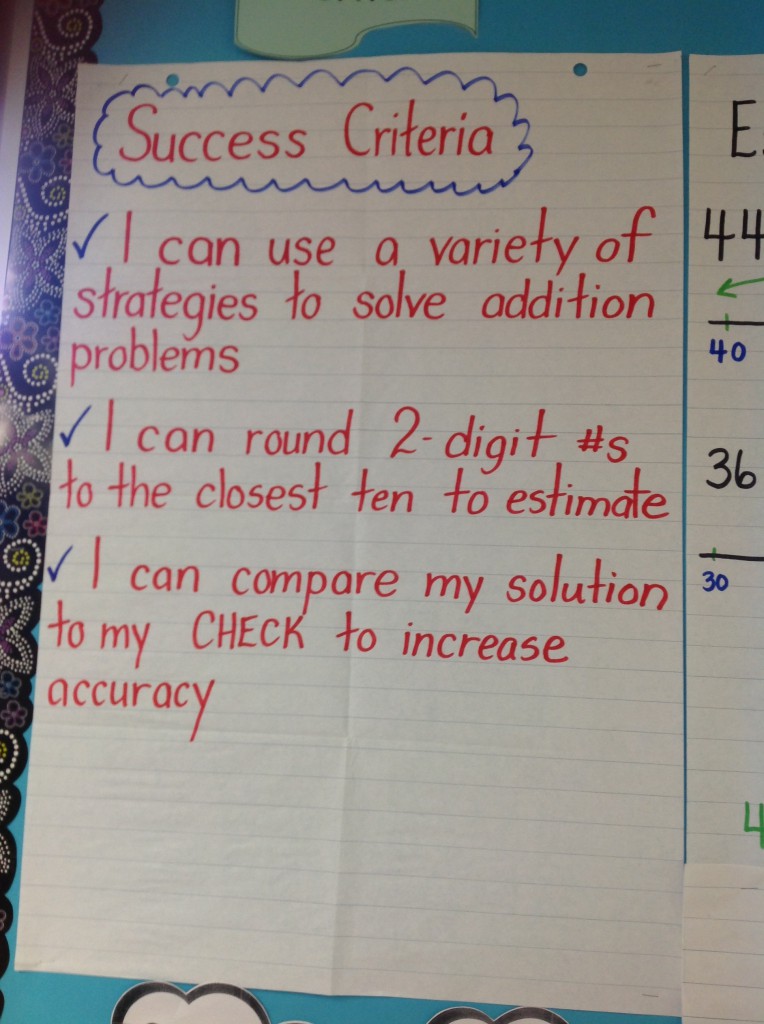 Success Criteria
✓ I can use a variety of
strategies to solve addition
problems
✓ I can round 2-digit #s
to the closest ten to estimate
✓ I can compare my solution
to my CHECK to increase
accuracy
44
40
36
30